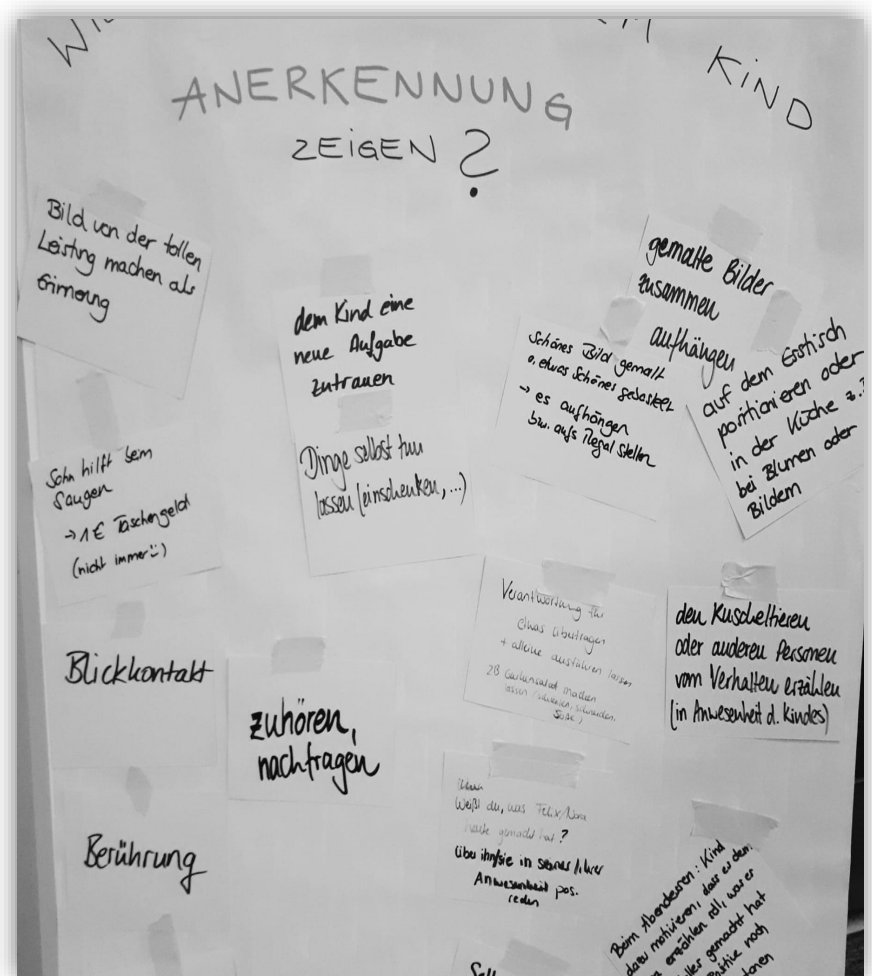 KIND
ANERKENNUNG
ZEIGEN ?
Bild von der tollen
Leistng machen als
dem Kind eine
neue Aufgabe
zutrauen
Dinge selbst tun
lassen (einschenken, ...)
gemalte Bilder
zusammen
aufhängen
Schönes Bild gemalt
o. etwas Schönes gebastelt
→ es aufhängen
bzw. aufs Regal stellen
auf dem Esstisch
positionieren oder
in der Küche z.B
bei Blumen oder
Bildern
Sohn hilft beim
Saugen
→ 1€ Taschengeld
(nicht immer ü)
Blickkontakt
zuhören,
nachfragen
Berührung
Verantwortung für
etwas übertragen
+ alleine ausführen lassen
ZB Gurkensalat machen
lassen (schälen, schneiden,
den Kuscheltieren
oder anderen Personen
vom Verhalten erzählen
(in Anwesenheit d. Kindes)
Weißt du, was Felix/Nora
heute gemacht hat?
über ihn/sie in seiner/ihrer
Anwesenheit pos.
reden
Beim Abendessen: Kind
dazu motivieren, dass es dem
erzählen soll, was er
gemacht hat
noch